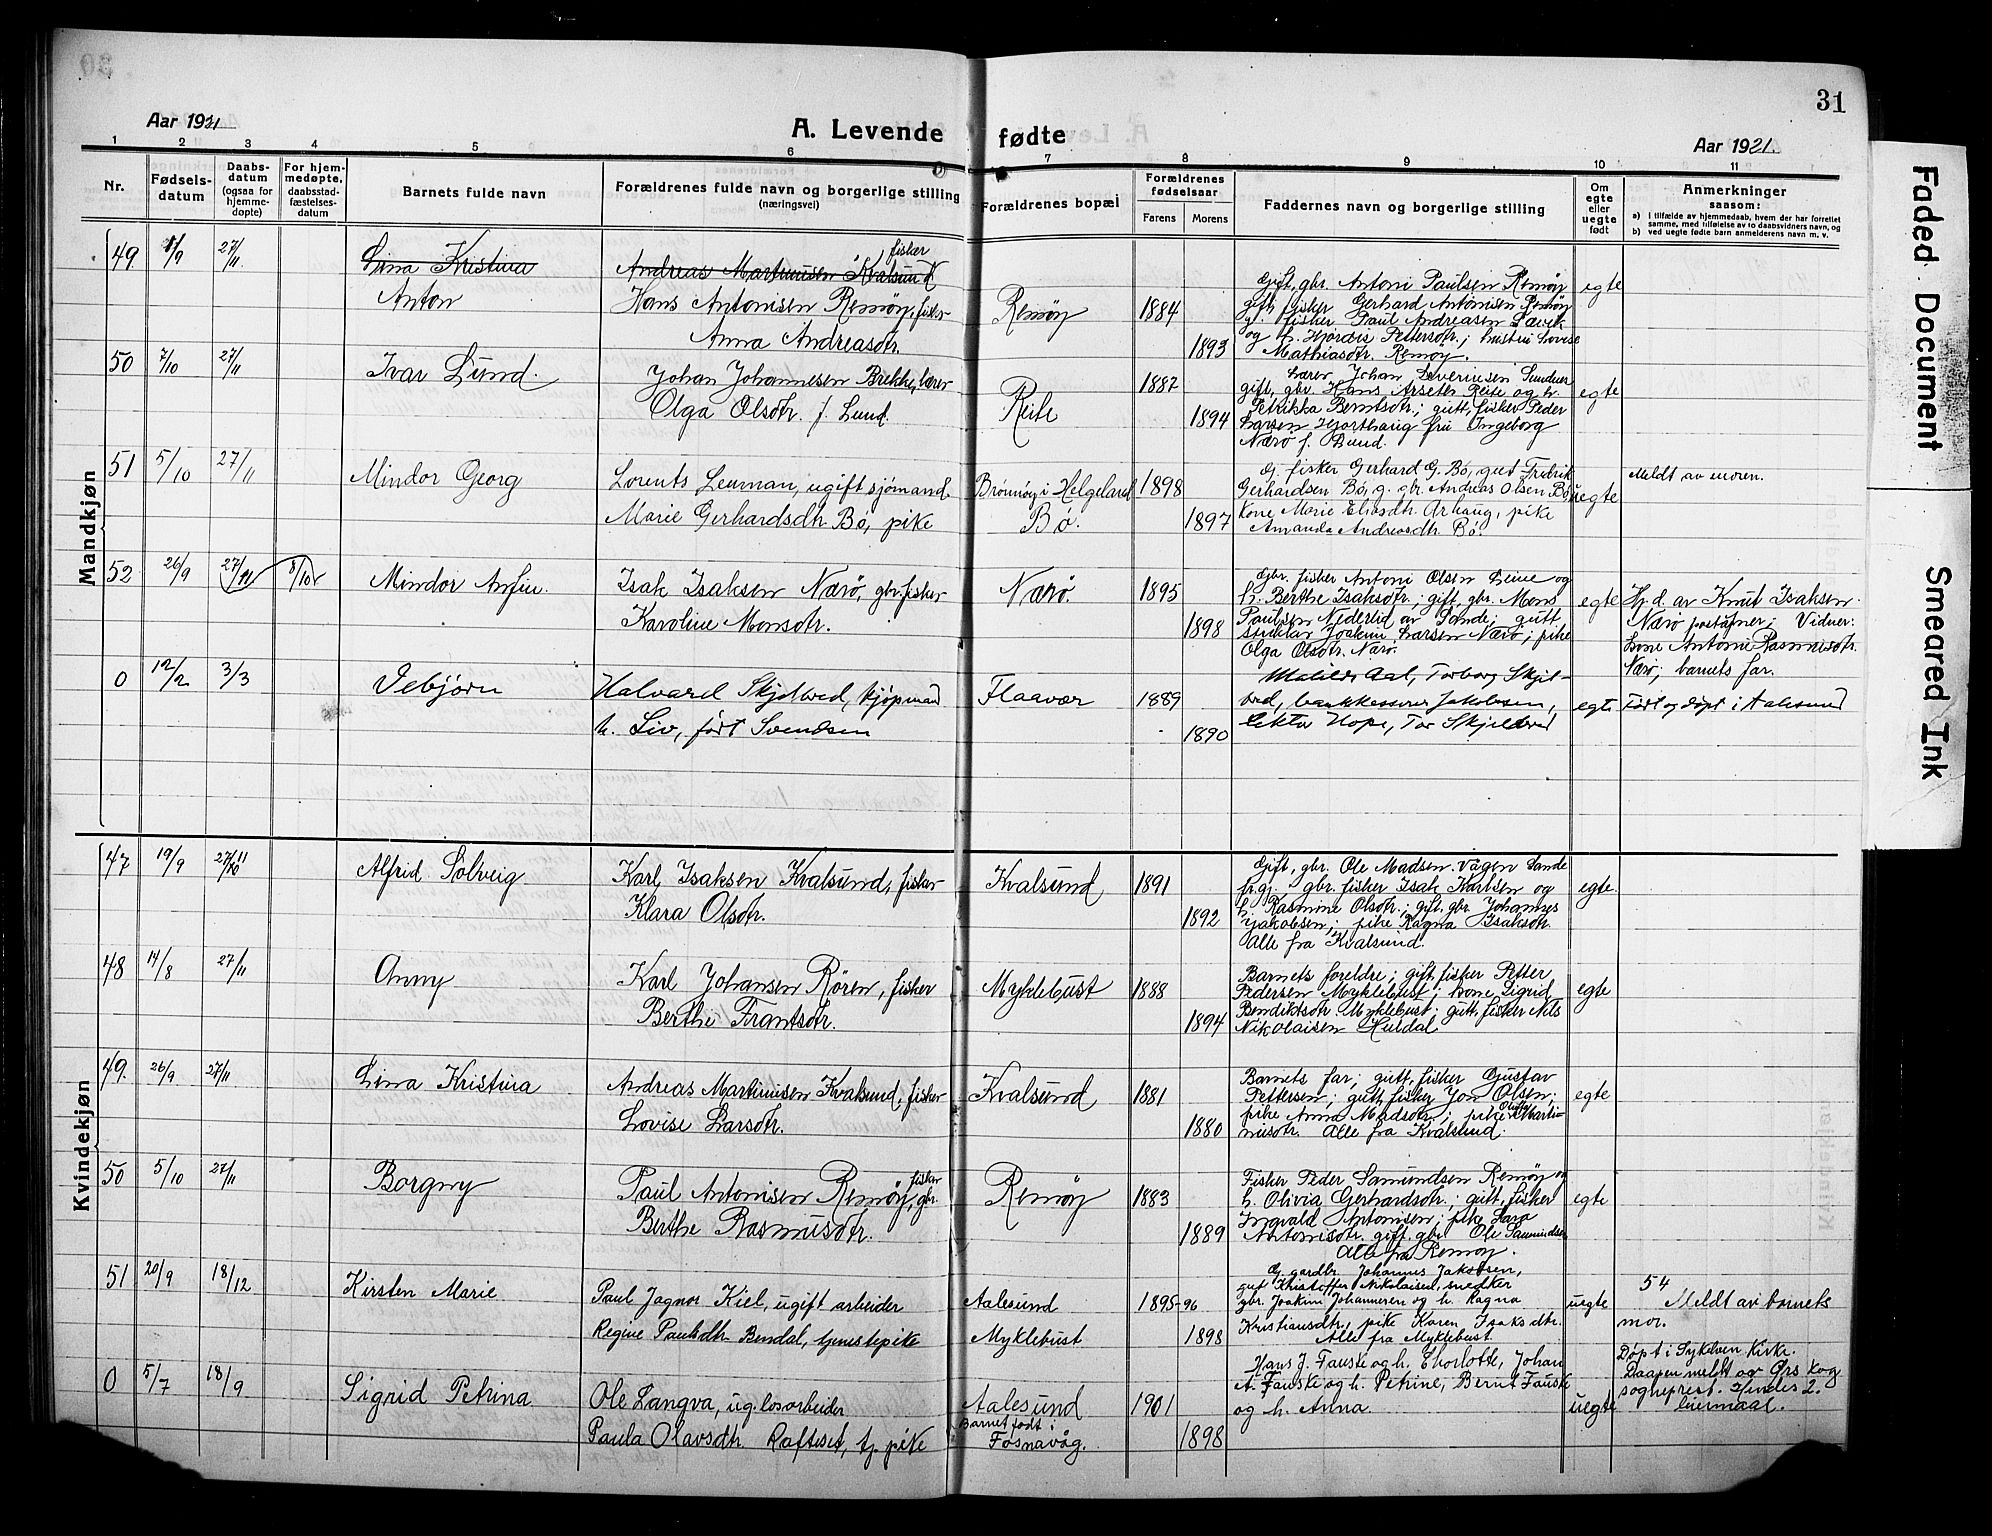 31
Aar 1921
A. Levende fødte
Aar 1921.
1 2 3 4 5 6 7 8 9 10 11
Nr.
Fødsels-
datum
Daabs-
datum
(ogsaa for
hjemme-
døpte)
For hjem-
medøpte,
daabsstad-
fæstelses-
datum
Barnets fulde navn
Forældrenes fulde navn og borgerlige stilling
(næringsvei)
Forældrenes bopæl
Forældrenes
fødselsaar
Farens Morens
Faddernes navn og borgerlige stilling
Om
egte
eller
uegte
født
Anmerkninger
saasom:
a) i tilfælde av hjemmedaab, hvem der har forrettet
samme, med tilføielse av to daabsvidners navn, og
b) ved uegte fødte barn anmelderens navn m. v.
Mandkjøn
49. 1/9 27/11.
Lina Kristina
Anton
fisker
Andreas Martinusen Kvalsund
Hans Antonisen Remøy, fisker
Anna Andreasdtr.
Remøy
1884
1893
Gift, gbr. Antoni Paulsen Remøy
gift, fisker Gerhard Antonisen Remøy
g. fisker Paul Andreasen Sævik
og h. Hjördis Pettersdtr.; hustru Lovise
Mathiasdtr. Remøy.
egte
50 7/10 27/11
Ivar Lund.
Johan Johannesen Brekke, lærer
Olga Olsdtr. f. Lund.
Reite
1887
1894
Lærer Johan Severinsen Sundnes
gift, gbr. Hans Arseter Reite og h.
Petrikka Berntsdtr.; gutt, fisker Peder
Larsen Hjorthaug fru Ingeborg
Nærø f. Lund.
egte
51 5/10 27/11
Mindor Georg
Lorents Leuman, ugift sjömand.
Marie Gerhardsdtr Bö, pike
Brönnöy i Helgeland
Bö.
1898
1897
G. fisker Gerhard G. Bö, gut Fredrik
Gerhardsen Bö, g. gbr. Andreas Olsen Bö
Kone Marie Eliasdtr Arhaug, pike
Amanda Andreasdtr Bö.
uegte
Meldt av moren.
52 26/9 27/11 8/10
Mindor Anfin.
Isak Isaksen Nærö, gbr. fisker
Karoline Monsdtr.
Nærö.
1895
1898
Gbr. fisker Antoni Olsen Leine og
h. Berthe Isaksdtr.; gift, gbr. Mons
Paulsen Nederlid av Sande; gutt
snikkar Joakim Larsen Nærö; pike
Olga Olsdtr. Nærö.
egte
Hj.d. av Knut Isaksen
Nærö poståpner; Vidner:
Kone Antonie Rasmusdtr.
Nærö; barnets far.
0 12/2 3/3
Isbjørn
Halvard Skjelvred, kjøpmand
h. Liv, født Svendsen
Flaavær
1889
1890
Matilde Aal, Torborg Skjel-
vred, bankkasserer Jakobsen,
lektor Hope, Tor Skjelvred
egte
Født og døpt i Aalesund
Kvindekjøn
47 19/9 27/11
Alfrid Solveig
Karl Isaksen Kvalsund, fisker
Klara Olsdtr.
Kvalsund
1891
1892
Gift, gbr. Ole Madsen Vågen Sande
gbr. fisker Isak Karlsen og
h. Rasmine Olsdtr.; gift, gbr. Johannes
Jakobsen; pike Ragna Isaksdtr.
Alle fra Kvalsund.
egte.
48 14/8 27/11
Anny
Karl Johansen Rören, fisker
Berthe Frantsdtr.
Myklebust
1888
1894
Barnets foreldre; gift, fisker Petter
Pedersen Myklebust; kone Sigrid
Bendiktsdtr Myklebust; gutt, fisker Nils
Nikolaisen Huldal
egte
49. 26/9 27/11
Lina Kristina
Andreas Martinusen Kvalsund, fisker
Lovise Larsdtr.
Kvalsund
1881
1880
Barnets far; gutt, fisker Gustav
Pettersen; gutt, fisker Jon Olsen;
pike Anna Madsdtr; pike Martin-
usdtr. Alle fra Kvalsund.
egte
50 5/10 27/11
Borgny
Paul Antonisen Remøy, fisker gbr.
Berthe Rasmusdtr.
Remøy
1883
1889
Fisker Peder Samundsen Remøy og
h. Olivia Gerhardsdtr.; gutt, fisker
Ingvald Antonisen; pike Lara
Antonisdtr. gift, gbr. Ole Samundsen
Alle fra Remøy.
egte
51 20/9 18/12
Kirsten Marie
Paul Jagnor Kiel, ugift arbeider
Regine Paulsdtr Bendal, tjenestepike
Aalesund
Myklebust
1895-96
1898
G. gardbr. Johannes Jakobsen,
gut Kristoffer Nikolaisen, snedker
gbr. Joakim Johannesen og h. Ragna
Kristiansdtr, pike Karen Isaksdtr.
Alle fra Myklebust
uegte
54
Meldt av barnets
mor.
0 5/7 18/9
Sigrid Petrina
Ole Langva, ug. løsarbeider
Paula Olavsdtr. Rafteset, tj. pike
Aalesund
Barnet født i
Fosnavåg.
1901
1898
Hans J. Fauske og h. Chorlotte, Johan
A. Fauske og h. Petrine, Bernt Fauske
og h. Anna.
uegte
Døpt i Sykelven Kirke.
Daapen meldt av Ørskog
sogneprest. Hendes 2.
leiermaal.
Faded Document
Smeared Ink